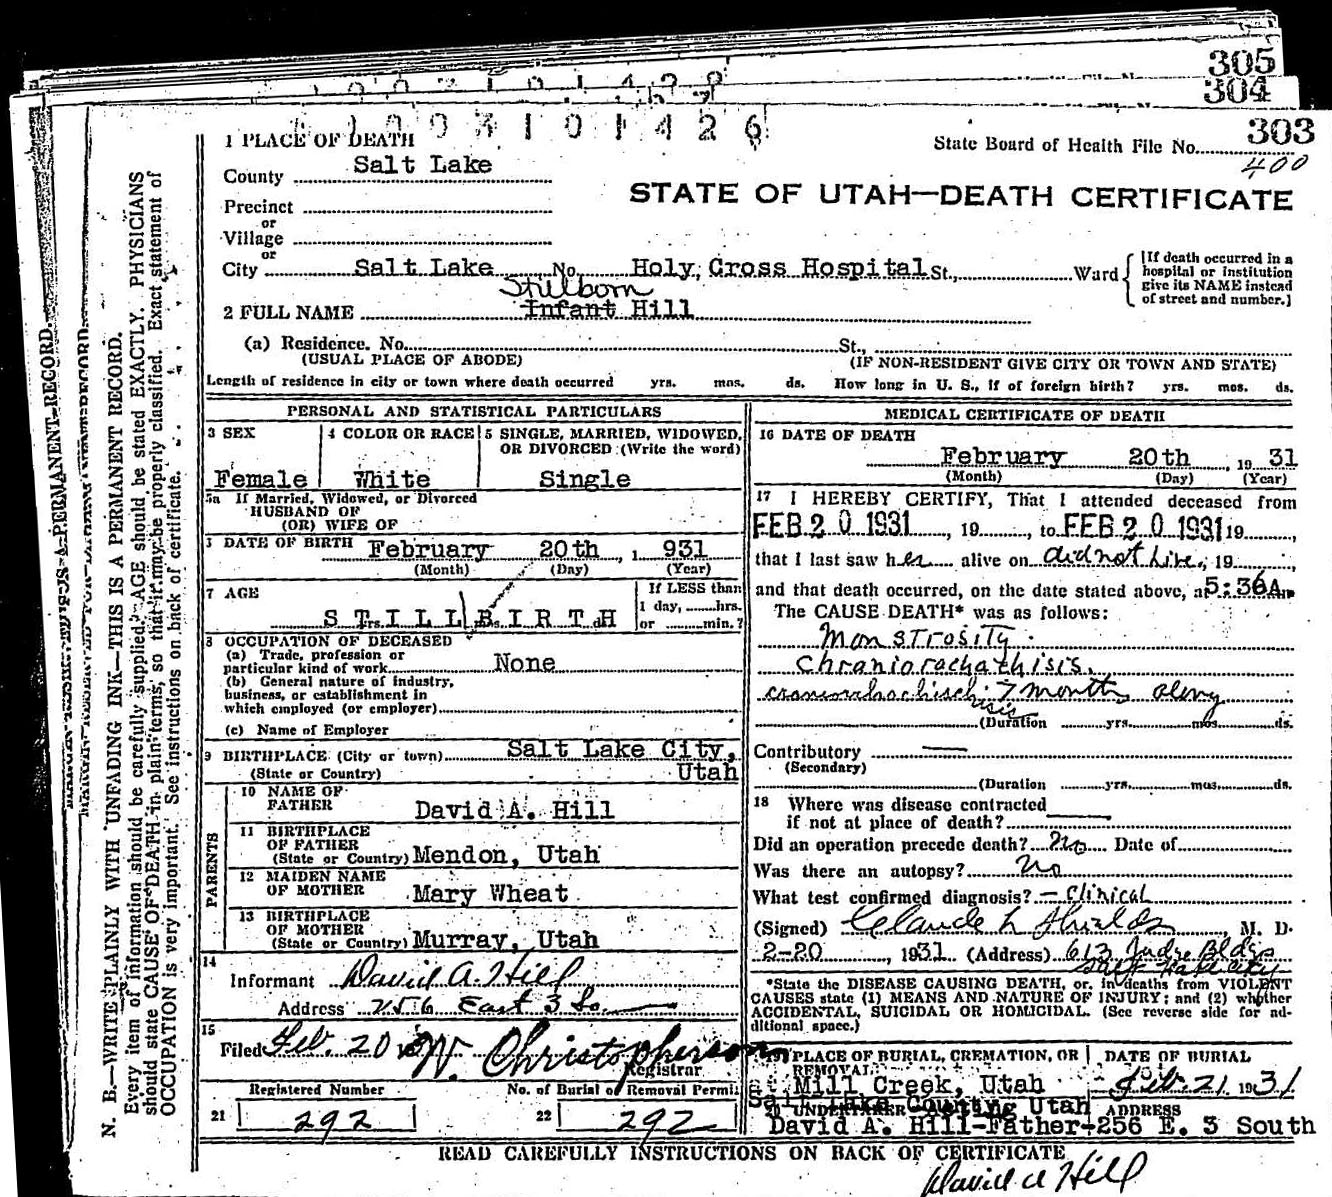 305
304
303
1003101426
400
1 PLACE OF DEATH
State Board of Health File No.
County Salt Lake
STATE OF UTAH—DEATH CERTIFICATE
Precinct
or
Village
or
City Salt Lake No. Holy Cross Hospital St., Ward
[If death occurred in a
hospital or institution
give its NAME instead
of street and number.]
Stilborn
2 FULL NAME Infant Hill
(a) Residence. No. St.,
(USUAL PLACE OF ABODE) (IF NON-RESIDENT GIVE CITY OR TOWN AND STATE)
Length of residence in city or town where death occurred yrs. mos. ds. How long in U. S., if of foreign birth? yrs. mos. ds.
PERSONAL AND STATISTICAL PARTICULARS
3 SEX
Female
4 COLOR OR RACE
White
5 SINGLE, MARRIED, WIDOWED,
OR DIVORCED (Write the word)
Single
5a If Married, Widowed, or Divorced
HUSBAND OF
(OR) WIFE OF
DATE OF BIRTH February 20th , 1 931
(Month) (Day) (Year)
7 AGE
STILLBIRTH
yrs. mos. ds.
If LESS than
1 day, hrs.
or min.?
8 OCCUPATION OF DECEASED
(a) Trade, profession or
particular kind of work None
(b) General nature of industry,
business, or establishment in
which employed (or employer)
(c) Name of Employer
9 BIRTHPLACE (City or town) Salt Lake City,
(State or Country) Utah
PARENTS
10 NAME OF
FATHER David A. Hill
11 BIRTHPLACE
OF FATHER
(State or Country) Mendon, Utah
12 MAIDEN NAME
OF MOTHER Mary Wheat
13 BIRTHPLACE
OF MOTHER
(State or Country) Murray, Utah
14
Informant David A. Hill
Address 256 East 3 So.
15
Filed Feb. 20 W. Christopherson
Registrar
Registered Number No. of Burial or Removal Permit
21 292 22 292
MEDICAL CERTIFICATE OF DEATH
16 DATE OF DEATH
February 20th , 19 31
(Month) (Day) (Year)
17 I HEREBY CERTIFY, That I attended deceased from
FEB 20 1931, 19 , to FEB 20 1931 19 ,
that I last saw her alive on did not live, 19 ,
and that death occurred, on the date stated above, at 5:36A m
The CAUSE DEATH* was as follows:
Monstrosity
Chraniorachathisis.
7 months
(Duration yrs. mos. ds.
Contributory —
(Secondary)
(Duration yrs. mos. ds.
18 Where was disease contracted
if not at place of death? —
Did an operation precede death? no Date of
Was there an autopsy? No
What test confirmed diagnosis? — Clinical
(Signed) Claude L Shields, M. D.
2-20 , 1931 (Address) 613 Judge Bldg
Salt Lake City
*State the DISEASE CAUSING DEATH, or, in deaths from VIOLENT
CAUSES state (1) MEANS AND NATURE OF INJURY; and (2) whether
ACCIDENTAL, SUICIDAL OR HOMICIDAL. (See reverse side for additional space.)
19 PLACE OF BURIAL, CREMATION, OR
REMOVAL
Mill Creek, Utah
Salt Lake County Utah
DATE OF BURIAL
Feb. 21 1931
20 UNDERTAKER Acting ADDRESS
David A. Hill-Father-256 E. 3 South
READ CAREFULLY INSTRUCTIONS ON BACK OF CERTIFICATE
David A Hill
N. B.—WRITE PLAINLY WITH UNFADING INK—THIS IS A PERMANENT RECORD.
Every item of information should be carefully supplied. AGE should be stated EXACTLY. PHYSICIANS
should state CAUSE OF DEATH in plain terms, so that it may be properly classified. Exact statement of
OCCUPATION is very important. See instructions on back of certificate.